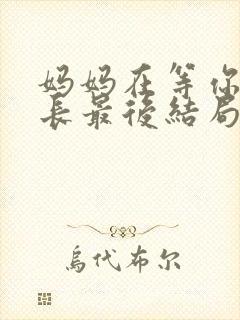 妈妈在等你
长最後結局
烏代布尔